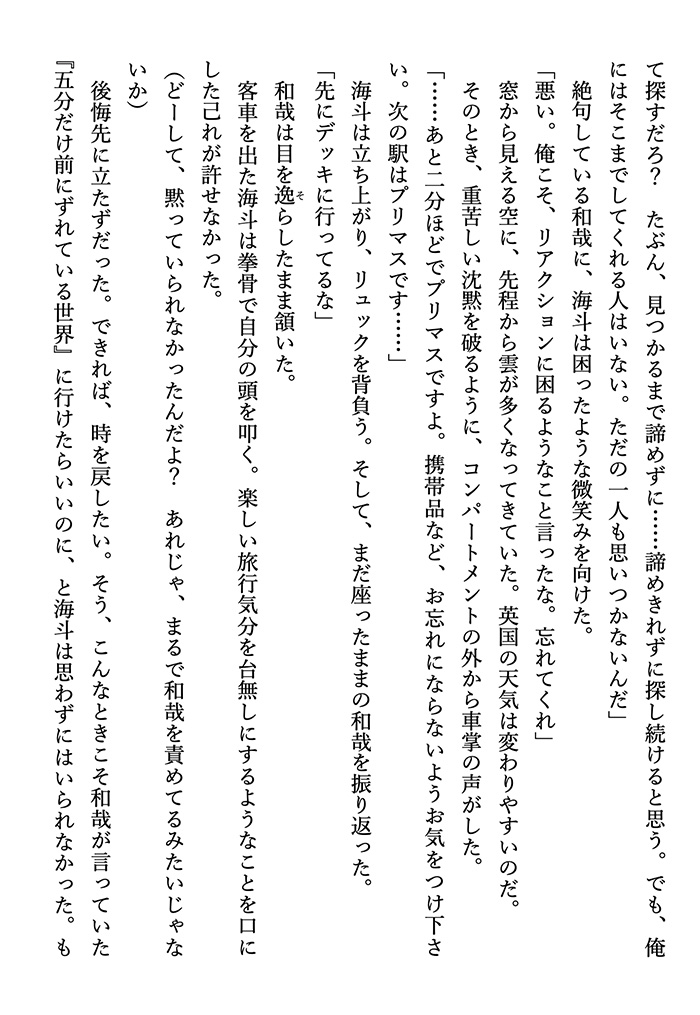 て探すだろ？　たぶん、見つかるまで諦めずに……諦めきれずに探し続けると思う。でも、俺
にはそこまでしてくれる人はいない。ただの一人も思いつかないんだ」
　絶句している和哉に、海斗は困ったような微笑みを向けた。
「悪い。俺こそ、リアクションに困るようなこと言ったな。忘れてくれ」
　窓から見える空に、先程から雲が多くなってきていた。英国の天気は変わりやすいのだ。
　そのとき、重苦しい沈黙を破るように、コンパートメントの外から車掌の声がした。
「……あと二分ほどでプリマスですよ。携帯品など、お忘れにならないようお気をつけ下さ
い。次の駅はプリマスです……」
　海斗は立ち上がり、リュックを背負う。そして、まだ座ったままの和哉を振り返った。
「先にデッキに行ってるな」
　和哉は目を逸そらしたまま頷いた。
　客車を出た海斗は拳骨で自分の頭を叩く。楽しい旅行気分を台無しにするようなことを口に
した己れが許せなかった。
（どーして、黙っていられなかったんだよ？　あれじゃ、まるで和哉を責めてるみたいじゃな
いか）
　後悔先に立たずだった。できれば、時を戻したい。そう、こんなときこそ和哉が言っていた
『五分だけ前にずれている世界』に行けたらいいのに、と海斗は思わずにはいられなかった。も